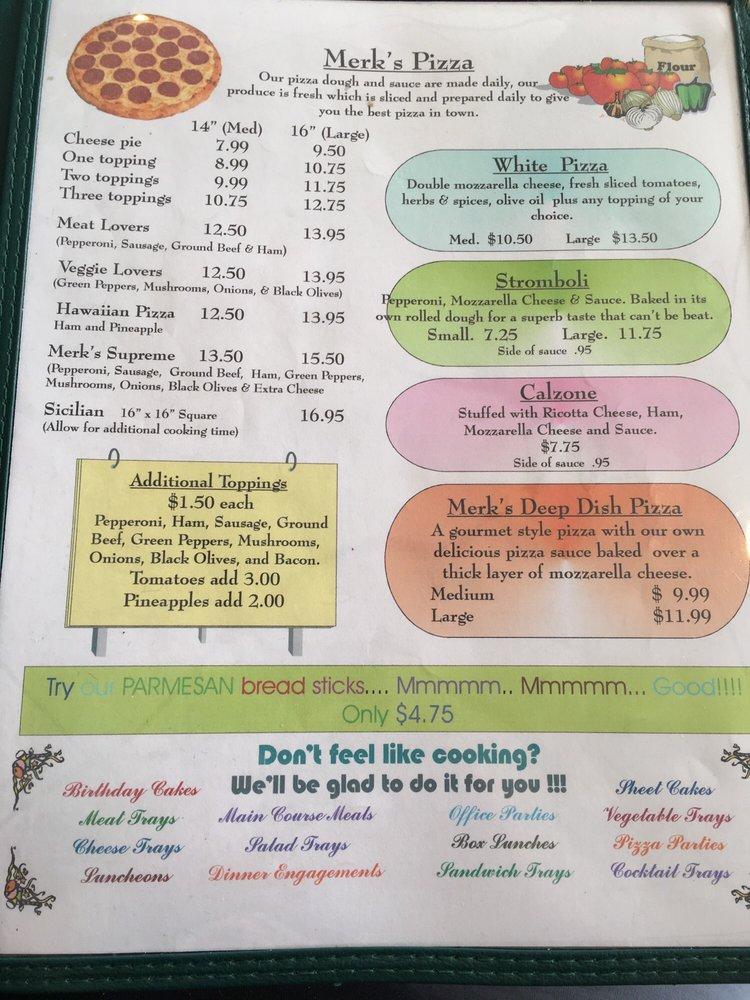 Merk's Pizza
Our pizza dough and sauce are made daily, our
produce is fresh which is sliced and prepared daily to give
you the best pizza in town.
Flour
14" (Med) 16" (Large)
Cheese pie 7.99 9.50
One topping 8.99 10.75
Two toppings 9.99 11.75
Three toppings 10.75 12.75
Meat Lovers 12.50 13.95
(Pepperoni, Sausage, Ground Beef & Ham)
Veggie Lovers 12.50 13.95
(Green Peppers, Mushrooms, Onions, & Black Olives)
Hawaiian Pizza 12.50 13.95
Ham and Pineapple
Merk's Supreme 13.50 15.50
(Pepperoni, Sausage, Ground Beef, Ham, Green Peppers,
Mushrooms, Onions, Black Olives & Extra Cheese
Sicilian 16" x 16" Square 16.95
(Allow for additional cooking time)
Additional Toppings
$1.50 each
Pepperoni, Ham, Sausage, Ground
Beef, Green Peppers, Mushrooms,
Onions, Black Olives, and Bacon.
Tomatoes add 3.00
Pineapples add 2.00
White Pizza
Double mozzarella cheese, fresh sliced tomatoes,
herbs & spices, olive oil plus any topping of your
choice.
Med. $10.50 Large $13.50
Stromboli
Pepperoni, Mozzarella Cheese & Sauce. Baked in its
own rolled dough for a superb taste that can't be beat.
Small. 7.25 Large. 11.75
Side of sauce .95
Calzone
Stuffed with Ricotta Cheese, Ham,
Mozzarella Cheese and Sauce.
$7.75
Side of sauce .95
Merk's Deep Dish Pizza
A gourmet style pizza with our own
delicious pizza sauce baked over a
thick layer of mozzarella cheese.
Medium $ 9.99
Large $11.99
Try our PARMESAN bread sticks.... Mmmmm.. Mmmmm... Good!!!!
Only $4.75
Don't feel like cooking?
We'll be glad to do it for you !!!
Birthday Cakes
Meat Trays
Cheese Trays
Luncheons
Main Course Meals
Salad Trays
Dinner Engagements
Office Parties
Box Lunches
Sandwich Trays
Sheet Cakes
Vegetable Trays
Pizza Parties
Cocktail Trays